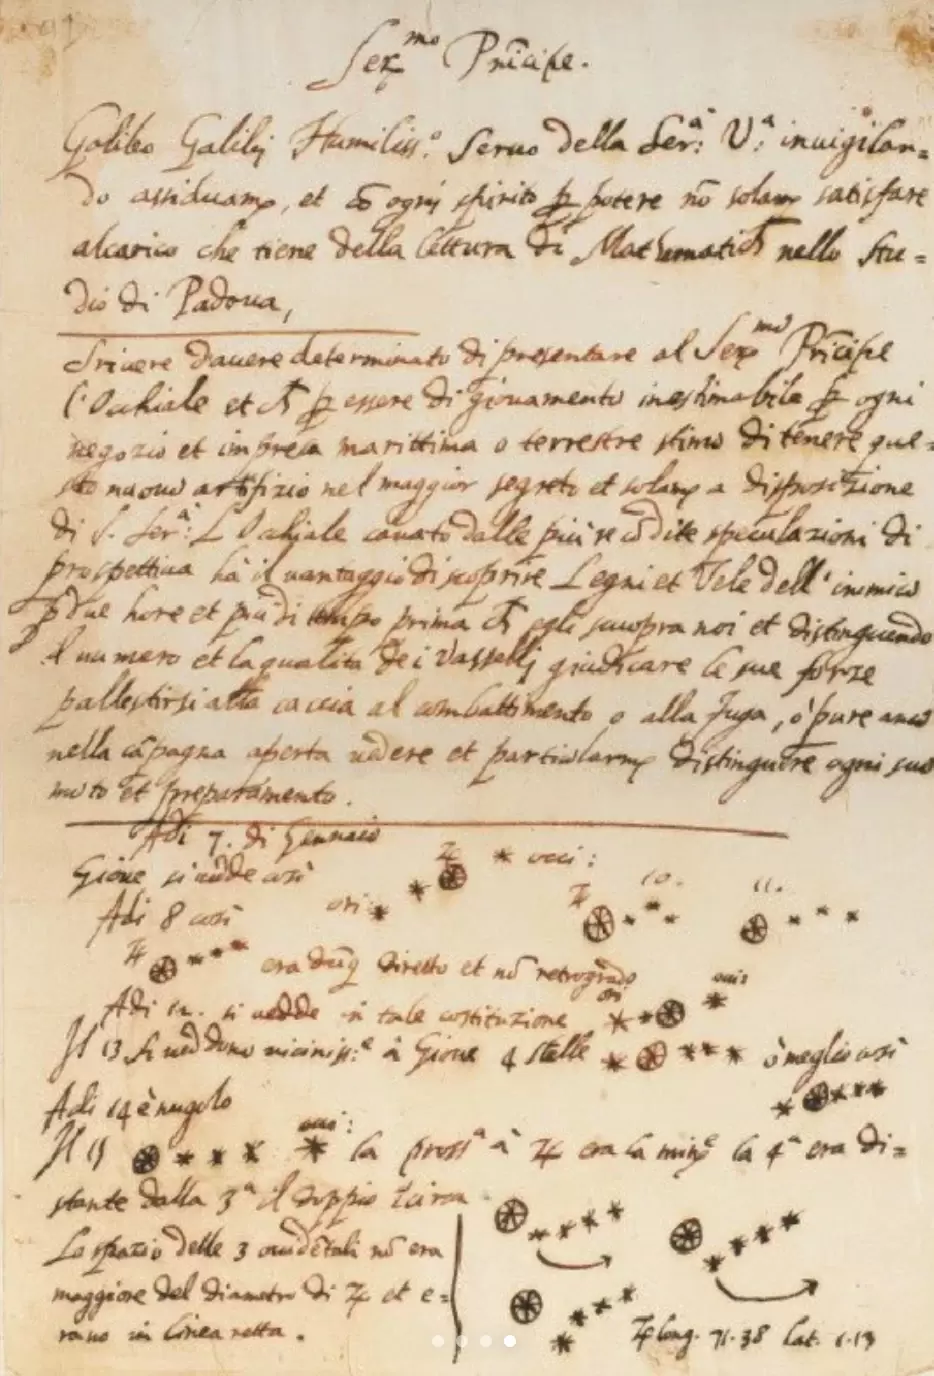 Ser.mo Prīcipe.
Galileo Galilei Humiliss.o Seruo della Ser:a V:a inuigilan=
do assiduam.e, et cō ogni spirito p potere nō solam.e satisfare
alcarico che tiene della lettura di Mathematich nello Stu=
dio di Padoua,
Scriuere dauere determinato di presentare al Ser.mo Prīcipe
l'Occhiale et ch p essere di giouamento inestimabile p ogni
negozio et impresa marittima o terrestre stimo di tenere que=
sto nuouo artifizio nel maggior segreto et solam.e a dispositione
di S. Ser:a L'Ochiale cauato dalle più recōdite speculazioni di
prospettiua hà il uantaggio di scoprire Legni et Vele dell'inimico
p due hore et più di tempo prima ch egli scuopra noi et distinguendo
il numero et la qualita dei Vasselli giudicare le sue forze
pallestirsi alla caccia al combattimento o alla fuga, ò pure anco
nella cāpagna aperta uedere et particolarm.e distinguere ogni suo
moto et preparamento.
Adi 7. di Gennaio
Gioue si uede così ♃ occi:
Adi 8 così ori ♃ 10. 11.
♃ era dūq diretto et nō retrogrado
Adi 12. si uedde in tale costituzione ori occi
Il 13 si ueddono uiciniss:e à Gioue 4 stelle ò meglio così
Adi 14 è nugolo
Il 15 occi: la pross.a à ♃ era la min.e la 4.a era di=
stante dalla 3.a il doppio circa
Lo spazio delle 3 ouidētali nō era
maggiore del diametro di ♃ et e=
rano in linea retta.
♃ long. 71.38 lat. 1.13